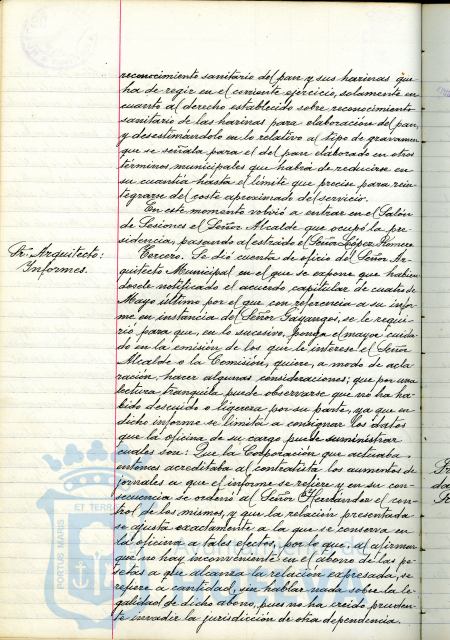 reconocimiento sanitario del pan y sus harinas que
ha de regir en el corriente ejercicio, solamente en
cuanto al derecho establecido sobre reconocimiento
sanitario de las harinas para elaboración del pan,
y desestimándolo en lo relativo al tipo de gravamen
que se señala para el del pan elaborado en otros
términos municipales que habrá de reducirse en
su cuantía hasta el límite que precise para rein
tegrarse del coste aproximado del servicio.
En este momento volvió a entrar en el Salón
de Sesiones el Señor Alcalde que ocupó la pre-
sidencia, pasando al estrado el Señor López Romero.
Sr. Arquitecto:
Informes.
Tercero. Se dió cuenta de oficio del Señor Ar-
quitecto Municipal en el que se expone que habien
dosele notificado el acuerdo capitular de cuatro de
Mayo último por el que con referencia a su infor
me en instancia del Señor Gayangos, se le requi-
rió para que, en lo sucesivo, ponga el mayor cuida-
do en la emisión de los que le interese el Señor
Alcalde o la Comisión, quiere, a modo de acla
ración, hacer algunas consideraciones; que por una
lectura tranquila puede observarse que no ha ha-
bido descuido o ligereza por su parte, ya que en
dicho informe se limitó a consignar los datos
que la oficina de su cargo puede suministrar
cuales son: Que la Corporación que actuaba
entonces acreditaba al contratista los aumentos de
jornales a que el informe se refiere y en su con-
secuencia se ordenó al Señor Hernández el con-
trol de los mismos, y que la relación presentada
se ajusta exactamente a la que se conserva en
la oficina a tales efectos, por lo que al afirmar
que no hay inconveniente en el abono de las pe-
setas a que alcanza la relación expresada, se
refiere a cantidad, sin hablar nada sobre la le-
galidad de dicho abono, pues no ha creido pruden-
te invadir la jurisdicción de otra dependencia.
PORTUS MARIS
ET TERR
Ayuntamiento de